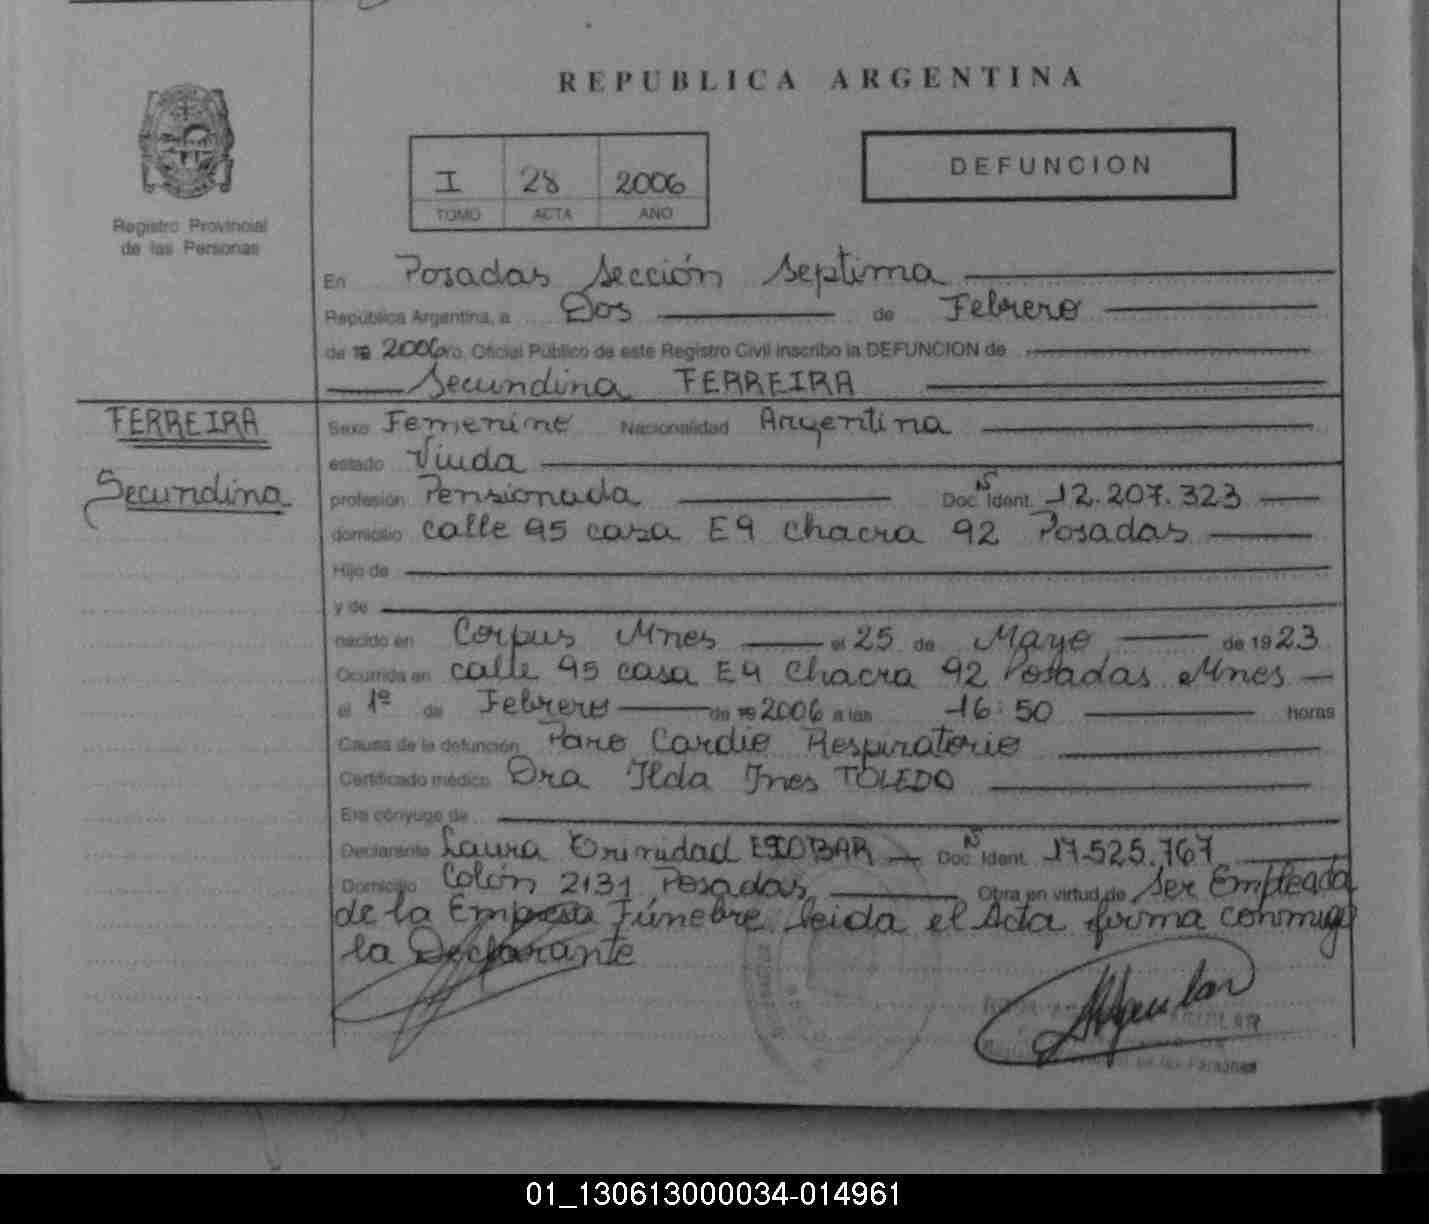 REPUBLICA ARGENTINA
I 28 2006
TOMO ACTA AÑO
DEFUNCION
Registro Provincial
de las Personas
En Posadas Sección Septima
República Argentina, a Dos de Febrero
de 19 2006 yo, Oficial Público de este Registro Civil inscribo la DEFUNCION de
Secundina FERREIRA
FERREIRA
Secundina
Sexo Femenino Nacionalidad Argentina
estado Viuda
profesión Pensionada Doc. Ident. N 12.207.323
domicilio calle 95 casa E9 chacra 92 Posadas
Hijo de
y de
nacido en Corpus Mnes el 25 de Mayo de 1923
Ocurrida en calle 95 casa E9 Chacra 92 Posadas Mnes
el 1º de Febrero de 19 2006 a las 16:50 horas
Causa de la defunción Paro Cardio Respiratorio
Certificado médico Dra Ilda Ines TOLEDO
Era cónyuge de
Declarante Laura Trinidad ESCOBAR Doc. Ident. N 17.525.767
Domicilio Colón 2131 Posadas Obra en virtud de Ser Empleada
de la Empresa Fúnebre leida el Acta firma conmigo
la Declarante
Aguilar
AGUILAR
de las Personas
01_130613000034-014961